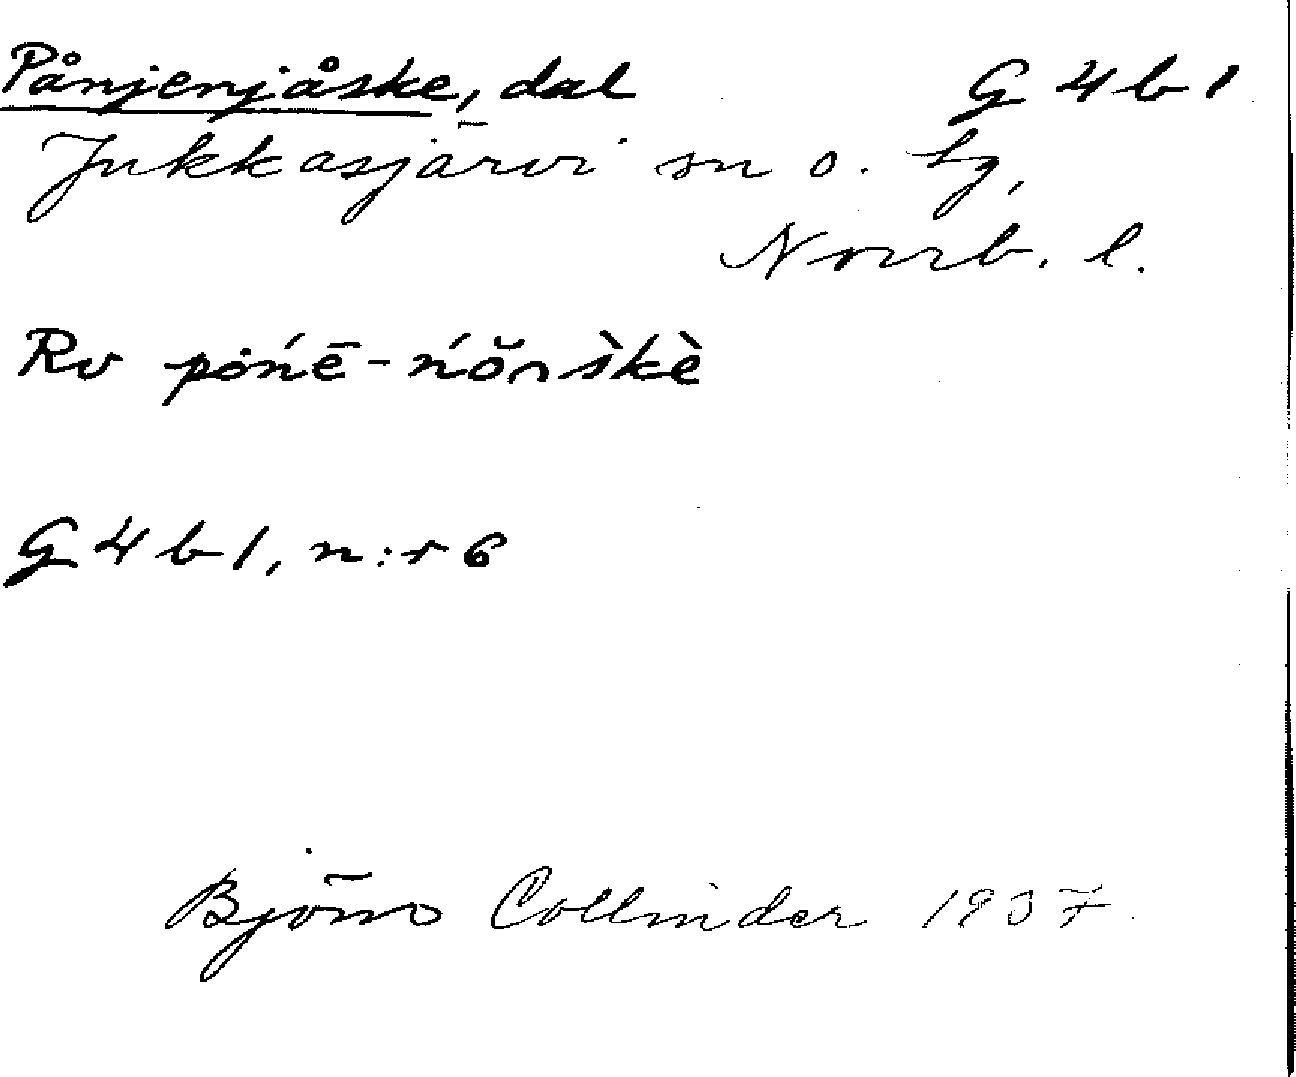 Pånjenjåske, dal G 4 b 1
Jukkasjärvi sn o. tg,
Norrb. l.
Rv pòńē-ńŏnškè
G 4 b 1, n:r 6
Björn Collinder 1937